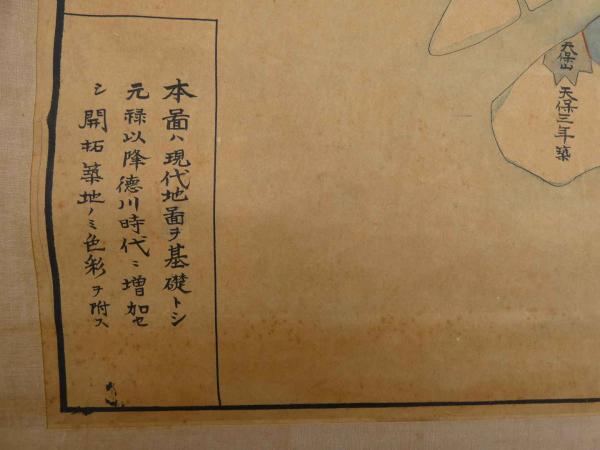 天保山
天保三年築
本圖ハ現代地圖ヲ基礎トシ
元禄以降德川時代ニ増加セ
シ開拓築地ノミ色彩ヲ附ス